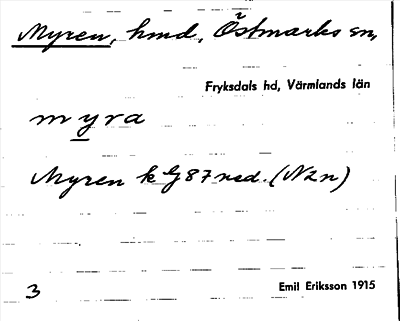 Myren, hmd, Östmarks sn,
Fryksdals hd, Värmlands län
myra
Myren k G 87 ned. (N2n)
3
Emil Eriksson 1915